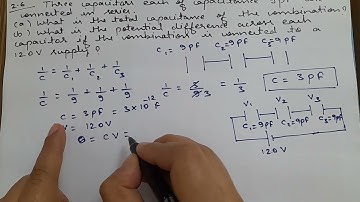 2.6 Three capacitors each of capacitance 9pF
connected in series
(a) what is the total capacitance of the combination?
(b) what is the potential difference across each
capacitor if the combination is connected to a
120 V supply
C₁=9pF C₂=9pF C₃=9pF
1/C = 1/C₁ + 1/C₂ + 1/C₃
1/C = 1/9 + 1/9 + 1/9
1/C = 3/9 3 = 1/3
C = 3pF
C = 3pF = 3×10⁻¹² F
V = 120V
Q = CV =
V₁ V₂ V₃
C₁=9pF C₂=9pF C₃=9pF
120V